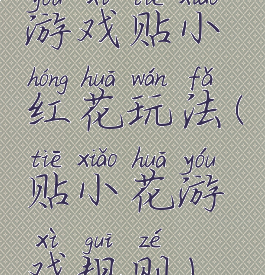 yóu xì tiē xiǎo
游戏贴小
hóng huā wán fǎ
红花玩法(
tiē xiǎo huā yóu
贴小花游
xì guī zé
戏规则)